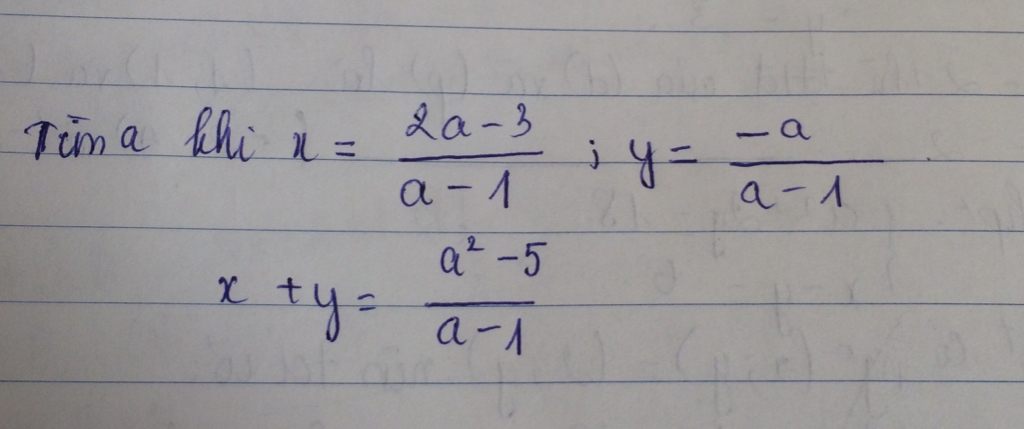 Tìm a khi x = \frac{2a-3}{a-1} ; y = \frac{-a}{a-1}
x + y = \frac{a^2-5}{a-1}